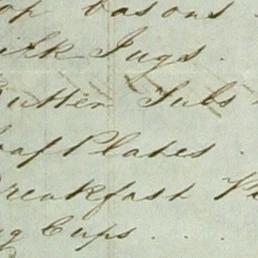 op basons
ilk Jugs.
utter Tubs
oaf Plates .
reakfast
ug Cups . . .